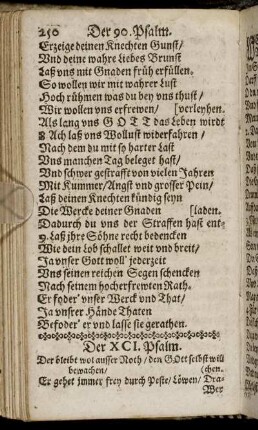 250 Der 90. Psalm.
Erzeige deinen Knechten Gunst/
Vnd deine wahre Liebes Brunst
Laß vns mit Gnaden früh erfüllen.
So wollen wir mit wahrer Lust
Hoch rühmen was du bey vns thust/
Wir wollen vns erfrewen/ [verleyhen.
Als lang vns GOTT das Leben wirdt
8 Ach laß vns Wollust widerfahren/
Nach dem du mit so harter Last
Vns manchen Tag beleget hast/
Vnd schwer gestrafft von vielen Jahren
Mit Kummer/Angst vnd grosser Pein/
Laß deinen Knechten kündig seyn
Die Wercke deiner Gnaden [laden.
Dadurch du vns der Straffen hast ent-
9. Laß ihre Söhne recht bedencken
Wie dein Lob schallet weit vnd breit/
Ja vnser Gott woll' jederzeit
Vns seinen reichen Segen schencken
Nach seinem hocherfrewten Rath.
Er foder' vnser Werck vnd That/
Ja vnsrer Hände Thaten
Befoder' er vnd lasse sie gerathen.
Der XCI. Psalm.
Der bleibt wol ausser Noth/den GOtt selbst will
bewachen/ (chen.
Er gehet jmmer frey durch Peste/Löwen/Dra-
Wer